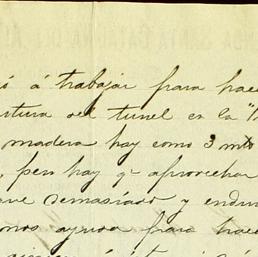 á trabajar para hace
rtura del tunel en la "
madera hay como 3 mts
, pero hay q aprovechar
ue demasiado y endu
nos ayuda para hace